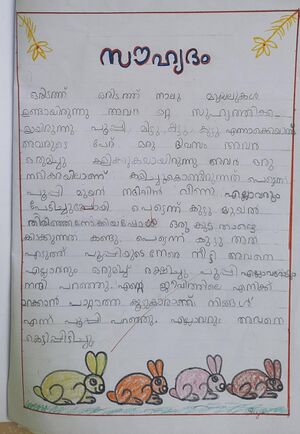 സൗഹൃദം
ഒരിടത്ത് ഒരിടത്ത് നാലു മുയലുകൾ
ഉണ്ടായിരുന്നു അവർ നല്ല സുഹൃത്തുക്കളാ
യിരുന്നു പൂപ്പി, മിട്ടു, കുട്ടു എന്നൊക്കെയാണ്
അവരുടെ പേര് ഒരു ദിവസം അവർ
ഒരുമിച്ച് കളിക്കുകയായിരുന്നു അവർ ഒരു
നദിക്കരയിലാണ് കളിച്ചുകൊണ്ടിരുന്നത് പെട്ടെന്ന്
പൂപ്പി മുയൽ നദിയിൽ വീണു എല്ലാവരും
പേടിച്ചുപോയി പെട്ടെന്ന് കുട്ടു മുയൽ
തിരിഞ്ഞുനോക്കിയപ്പോൾ ഒരു കൂട് താഴെ
കിടക്കുന്നത് കണ്ടു. പെട്ടെന്ന് കുട്ടു അത്
എടുത്ത് പൂപ്പിയുടെ നേരെ നീട്ടി അവനെ
എല്ലാവരും ഒരുമിച്ച് രക്ഷിച്ചു പൂപ്പി എല്ലാവരോടും
നന്ദി പറഞ്ഞു. എന്റെ ജീവിതത്തിലെ എനിക്ക്
മറക്കാൻ പറ്റാത്ത കൂട്ടുകാരാണ് നിങ്ങൾ
എന്ന് പൂപ്പി പറഞ്ഞു. എല്ലാവരും അവനെ
കെട്ടിപ്പിടിച്ചു